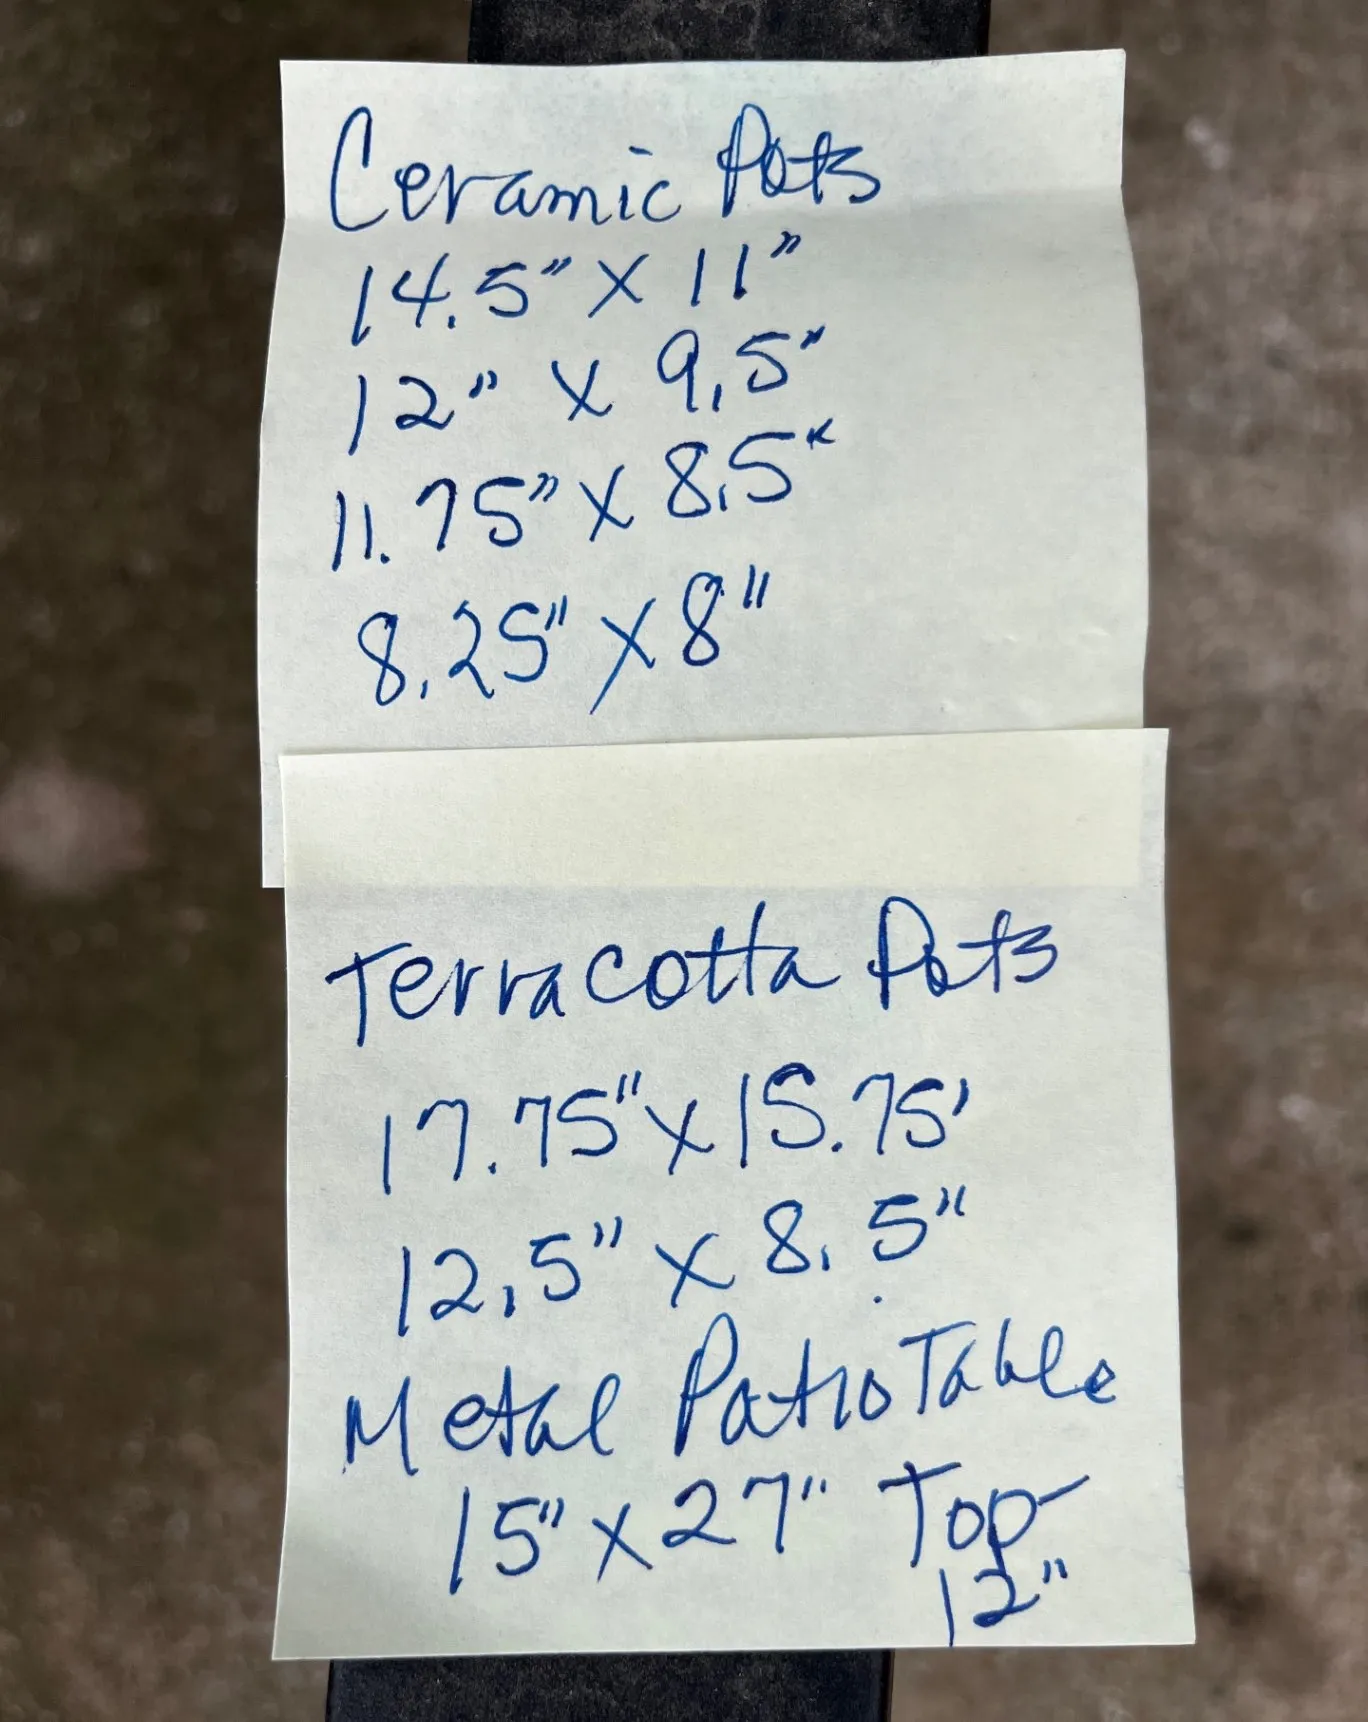 Ceramic Pots
14.5" X 11"
12" X 9.5"
11.75" X 8.5"
8.25" X 8"
Terracotta Pots
17.75" X 15.75'
12.5" X 8.5"
Metal Patio Table
15" X 27" Top
12"